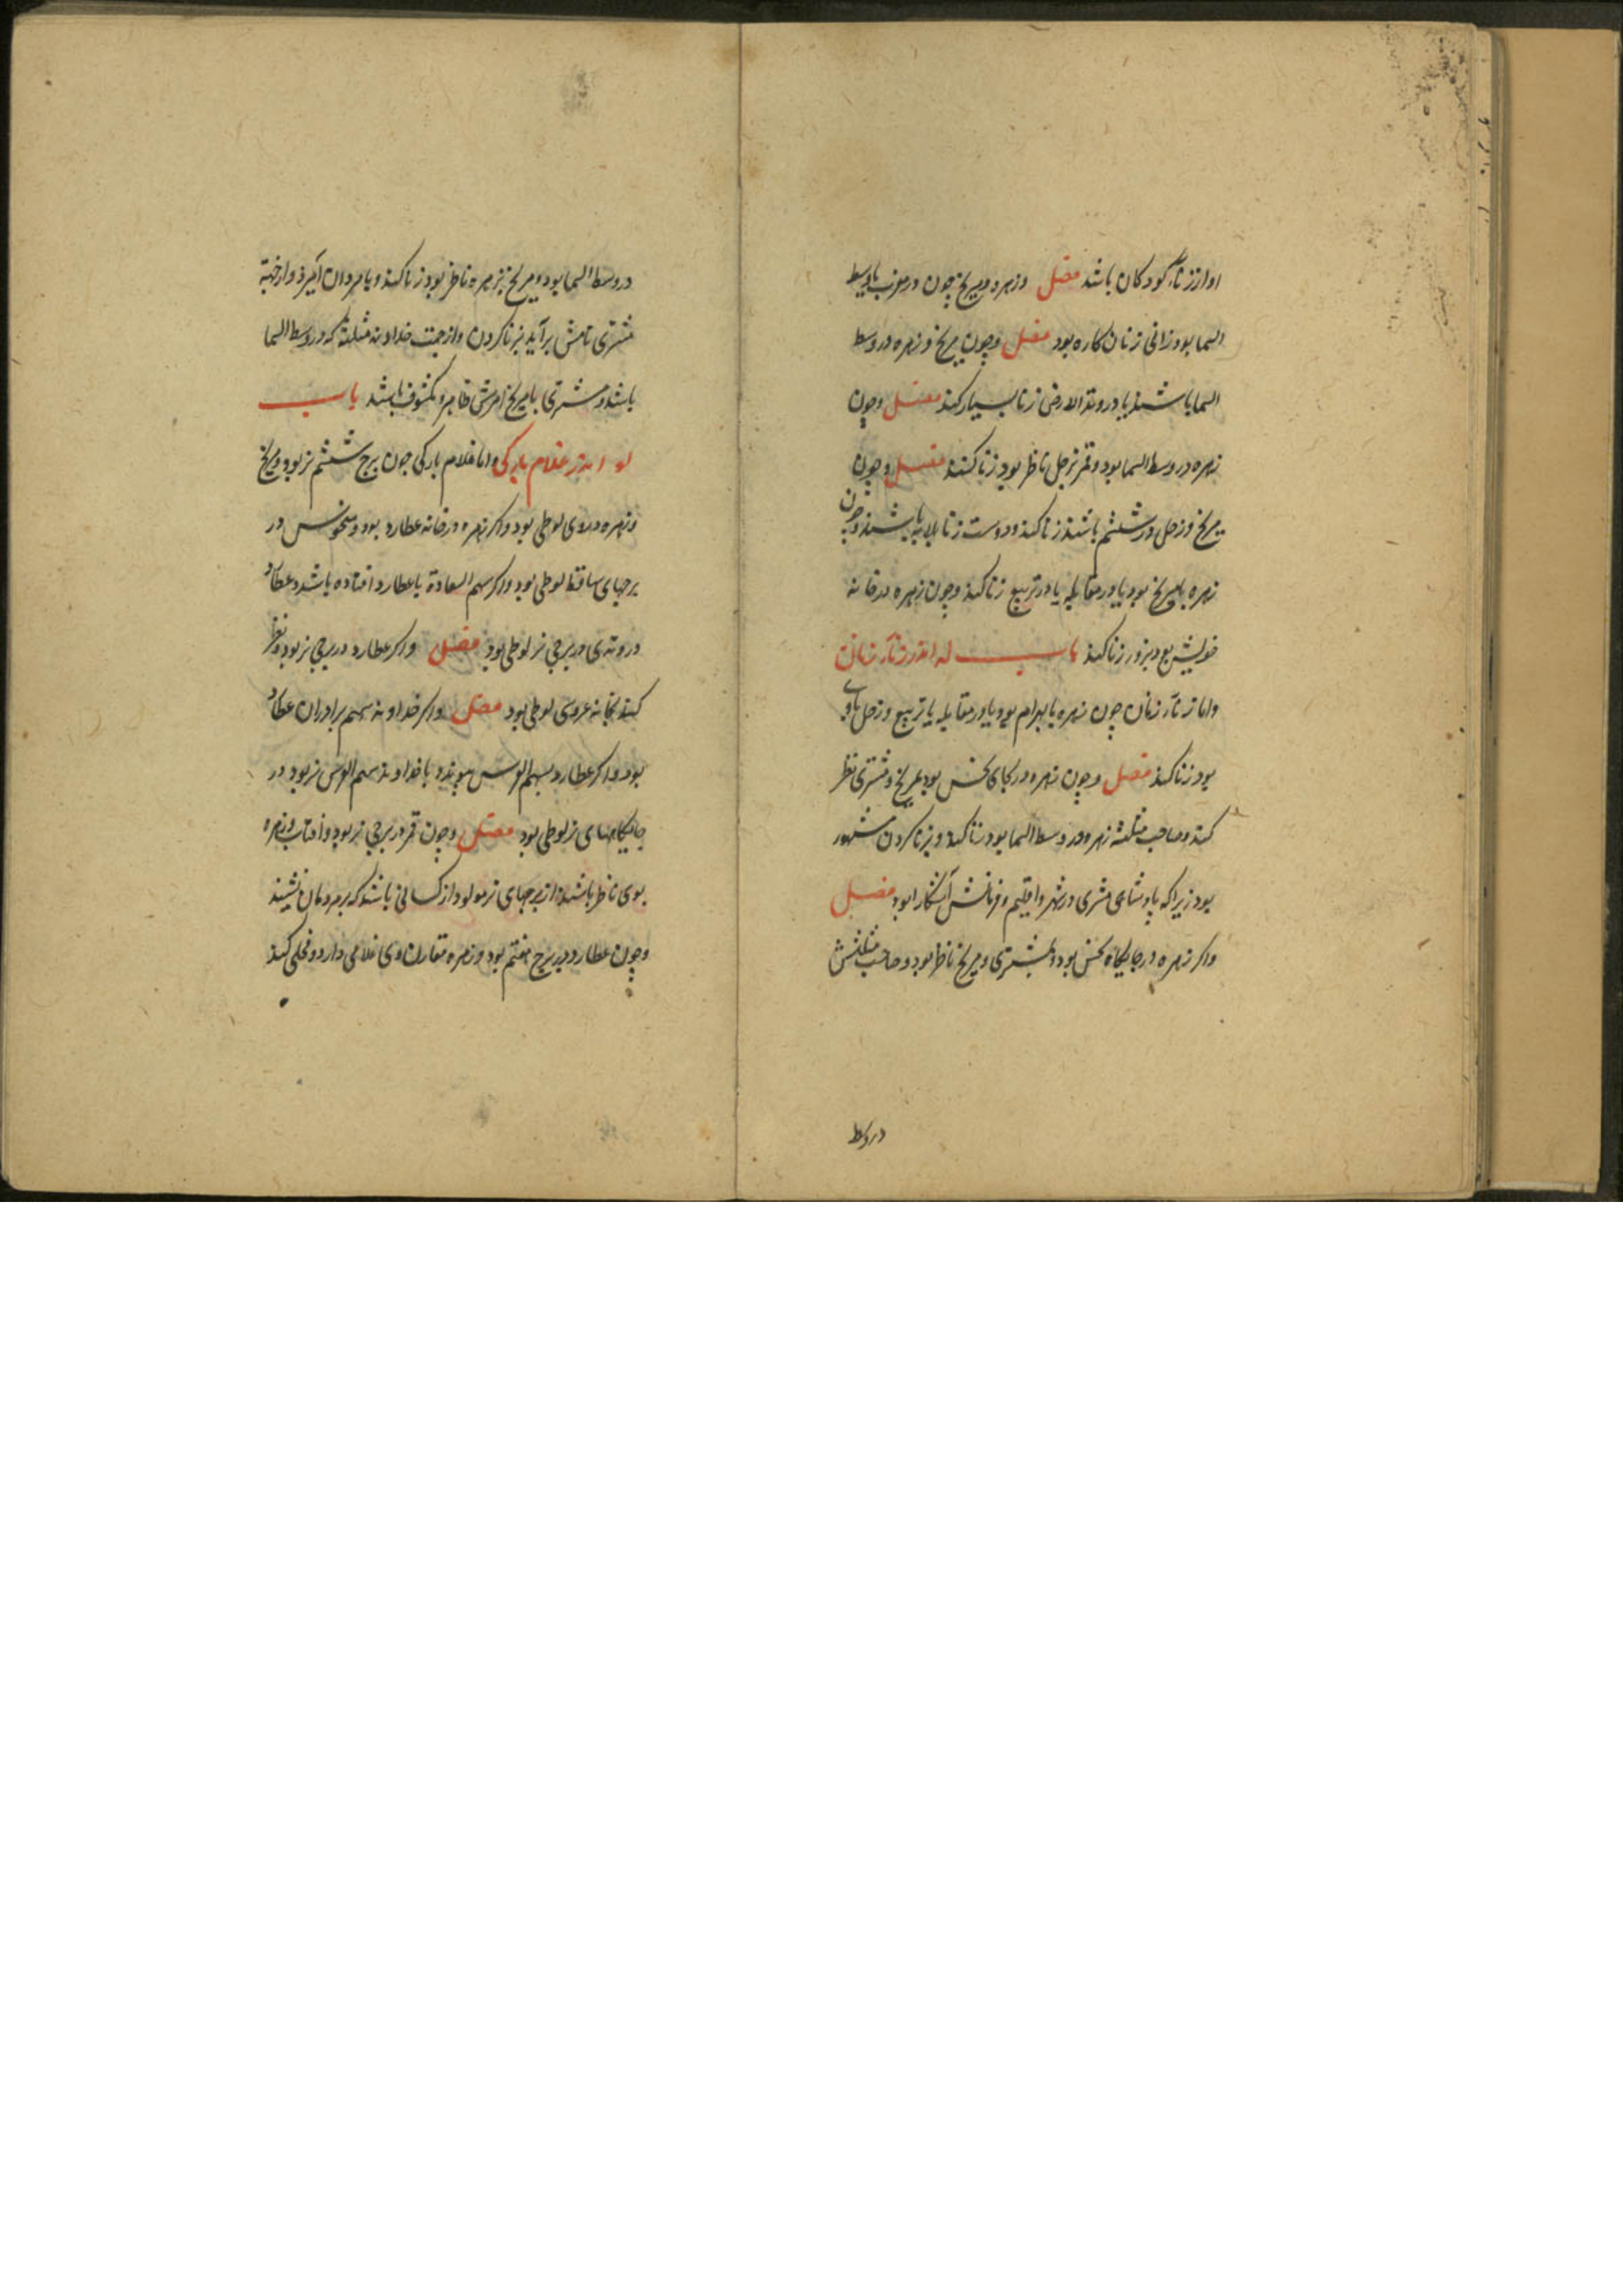 او از زناء کودکان باشد فصل وزهره ومریخ چون در مغرب یا وسط
السما بود زانی زنان کاره بود فصل وچون مریخ وزهره در وسط
السما باشند یا در وتد الارض زنا بسیار کند فصل وچون
زهره در وسط السما بود وقمر بزحل ناظر بود زنا کند فصل وچون
مریخ وزحل در ششم باشند زنا کند ودوست زنا باشند وچون
زهره با مریخ بود یا در مقابله یا در تربیع زنا کند وچون زهره در خانه
خویش بود بزور زنا کند باب له اندر زناء زنان
واما زناء زنان چون زهره با بهرام بود یا در مقابله یا تربیع وزحل باوی
بود زنا کند فصل وچون زهره در جای نحس بود بمریخ ومشتری نظر
کند وصاحب مثلثه زهره در وسط السما بود زنا کند وبزنا کردن مشهور
بود زیرا که پادشاهی مشتری در شهر واقلیم وفرمانش آشکارا بود فصل
واکر زهره در جایکاه نحس بود وبمشتری ومریخ ناظر بود وصاحب مثلثش
در وسط
در وسط السما بود ومریخ بزهره ناظر بود زنا کند وبا مردان آمیزد واز جهة
مشتری نامش برآید بزنا کردن واز جهت خداوند مثلثه که در وسط السما
باشد ومشتری با مریخ امرش ظاهر ومکشوف باشد باب
لو اندر غلام بارکی واما غلام بارکی چون برج ششم نر بود ومریخ
وزهره در وی لوطی بود واکر زهره در خانه عطارد بود ومنحوس در
برجهای ساقط لوطی بود واکر سهم السعادة با عطارد افتاده باشد وعطارد
در وتدی در برجی نر لوطی بود فصل واکر عطارد در برجی نر بود ونظر
کند بخانه عروسی لوطی بود فصل واکر خداوند سهم برادران عطارد
بود واکر عطارد بسهم العرس پیوندد با خداوند سهم العرس نر بود در
جایکاههای نر لوطی بود فصل وچون قمر در برجی نر بود وآفتاب وزهره
بوی ناظر باشند از برجهای نر مولود از کسانی باشد که بر مردمان نشیند
وچون عطارد در برج هفتم بود وزهره مقارن وی غلامی دارد وفحلی کند